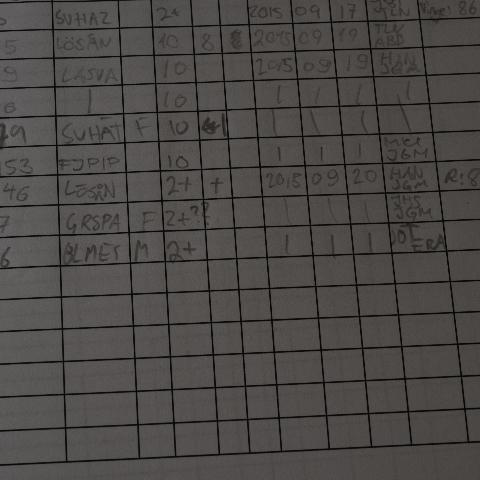 SUHAZ 2+ 2015 09 17 : 86
5 LÖSÅN 10 8 2015 09 19 ABD
9 LASVA 10 2015 09 19 HAN JGM
| 10 | | | |
79 SUHAT F 10 | | | | |
153 FJPIP 10 | | | JGM
46 LESIN 2+ + 2015 09 20 HAN JGM R:8
7 GRSPA F 2+?? | | | JHS JGM
6 BLMES M 2+ | | | DOT ERA